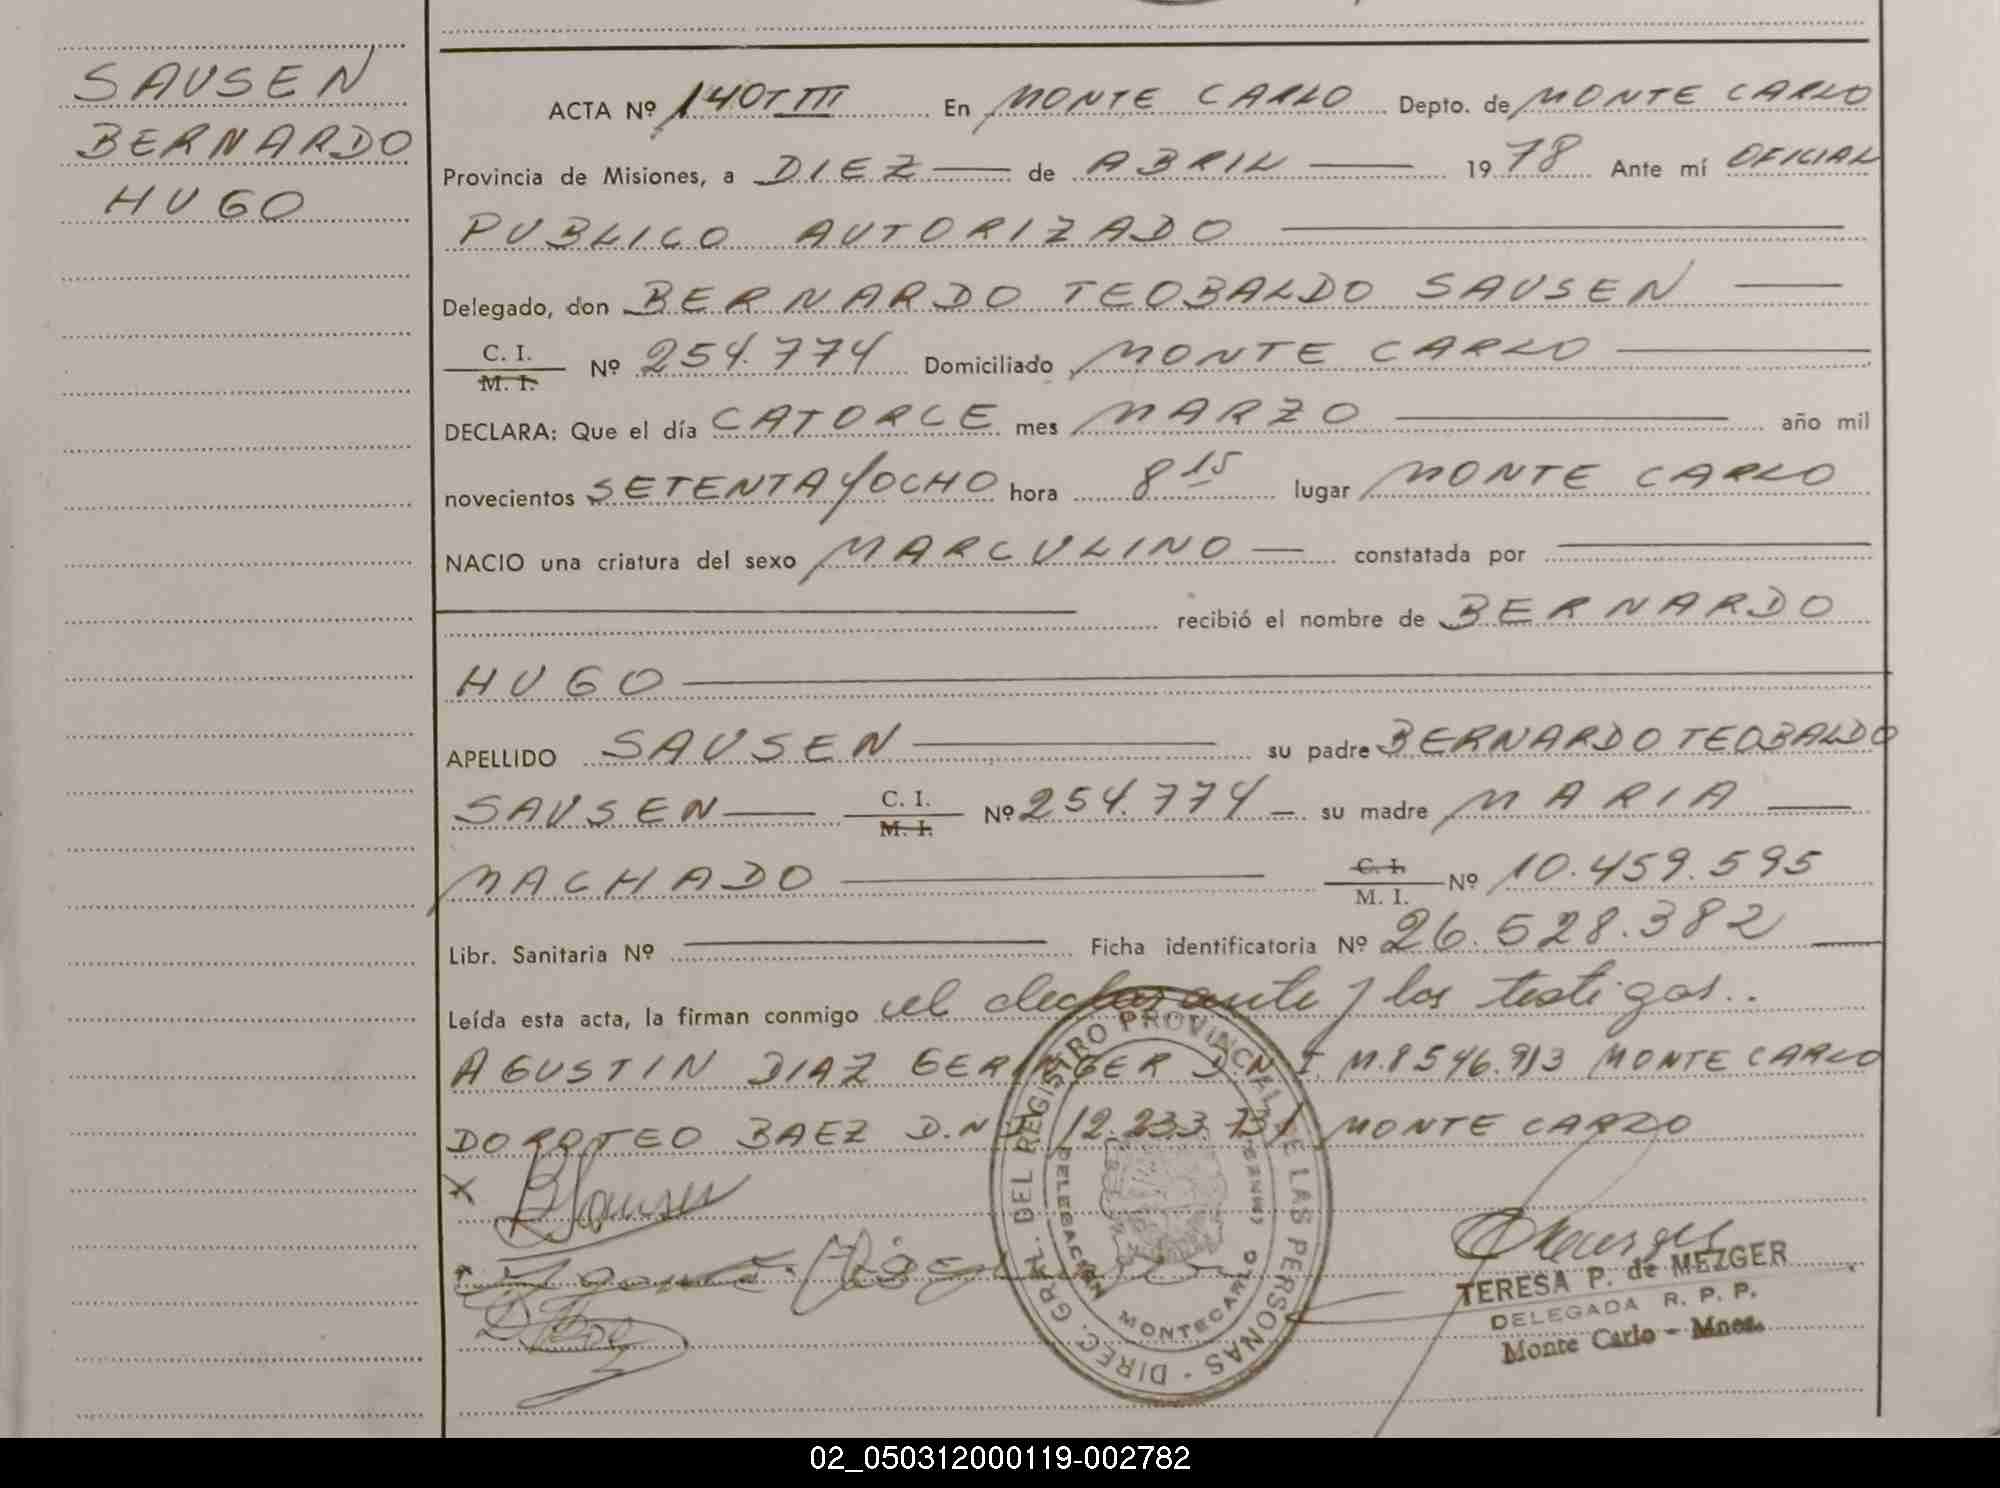 SAUSEN
BERNARDO
HUGO
ACTA Nº 140 T III En MONTE CARLO Depto. de MONTE CARLO
Provincia de Misiones, a DIEZ de ABRIL 1978 Ante mí OFICIAL
PUBLICO AUTORIZADO
Delegado, don BERNARDO TEOBALDO SAUSEN
C. I.
M. I.
Nº 254.774 Domiciliado MONTE CARLO
DECLARA: Que el día CATORCE mes MARZO año mil
novecientos SETENTA Y OCHO hora 8 15 lugar MONTE CARLO
NACIO una criatura del sexo MARCULINO constatada por
recibió el nombre de BERNARDO
HUGO
APELLIDO SAUSEN su padre BERNARDO TEOBALDO
SAUSEN C. I. M. I. Nº 254.774 su madre MARIA
MACHADO C. I. M. I. Nº 10.459.595
Libr. Sanitaria Nº Ficha identificatoria Nº 26.528.382
Leída esta acta, la firman conmigo el declarante y los testigos..
AGUSTIN DIAZ GERINGER D.N.I. M.8546.913 MONTE CARLO
DOROTEO BAEZ D.N.I. 12.233.731 MONTE CARLO
X BSausen
DIREC. GRL. DEL REGISTRO PROVINCIAL DE LAS PERSONAS
DELEGACIÓN MONTECARLO
TERESA P. de MEZGER
DELEGADA R. P. P.
Monte Carlo - Mnes.
02_050312000119-002782